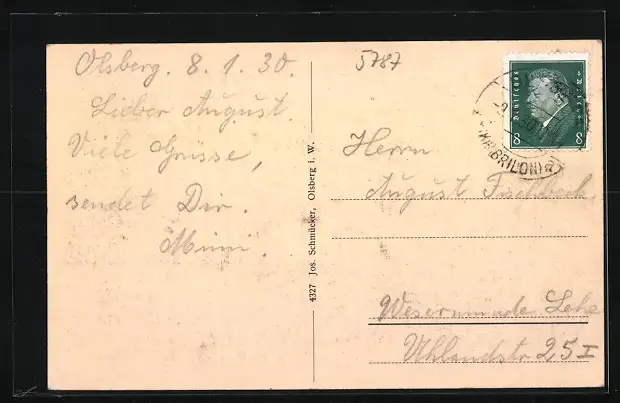 Olsberg. 8. 1. 30.
Lieber August.
Viele Grüsse,
sendet Dir.
Mimi.
4327 Jos. Schmücker, Olsberg i. W.
5787
Deutsches Reich
8 8
(KR. BRILON)
Herrn
August Fischbeck
Wesermünde Lehe
Uhlandstr 25 I